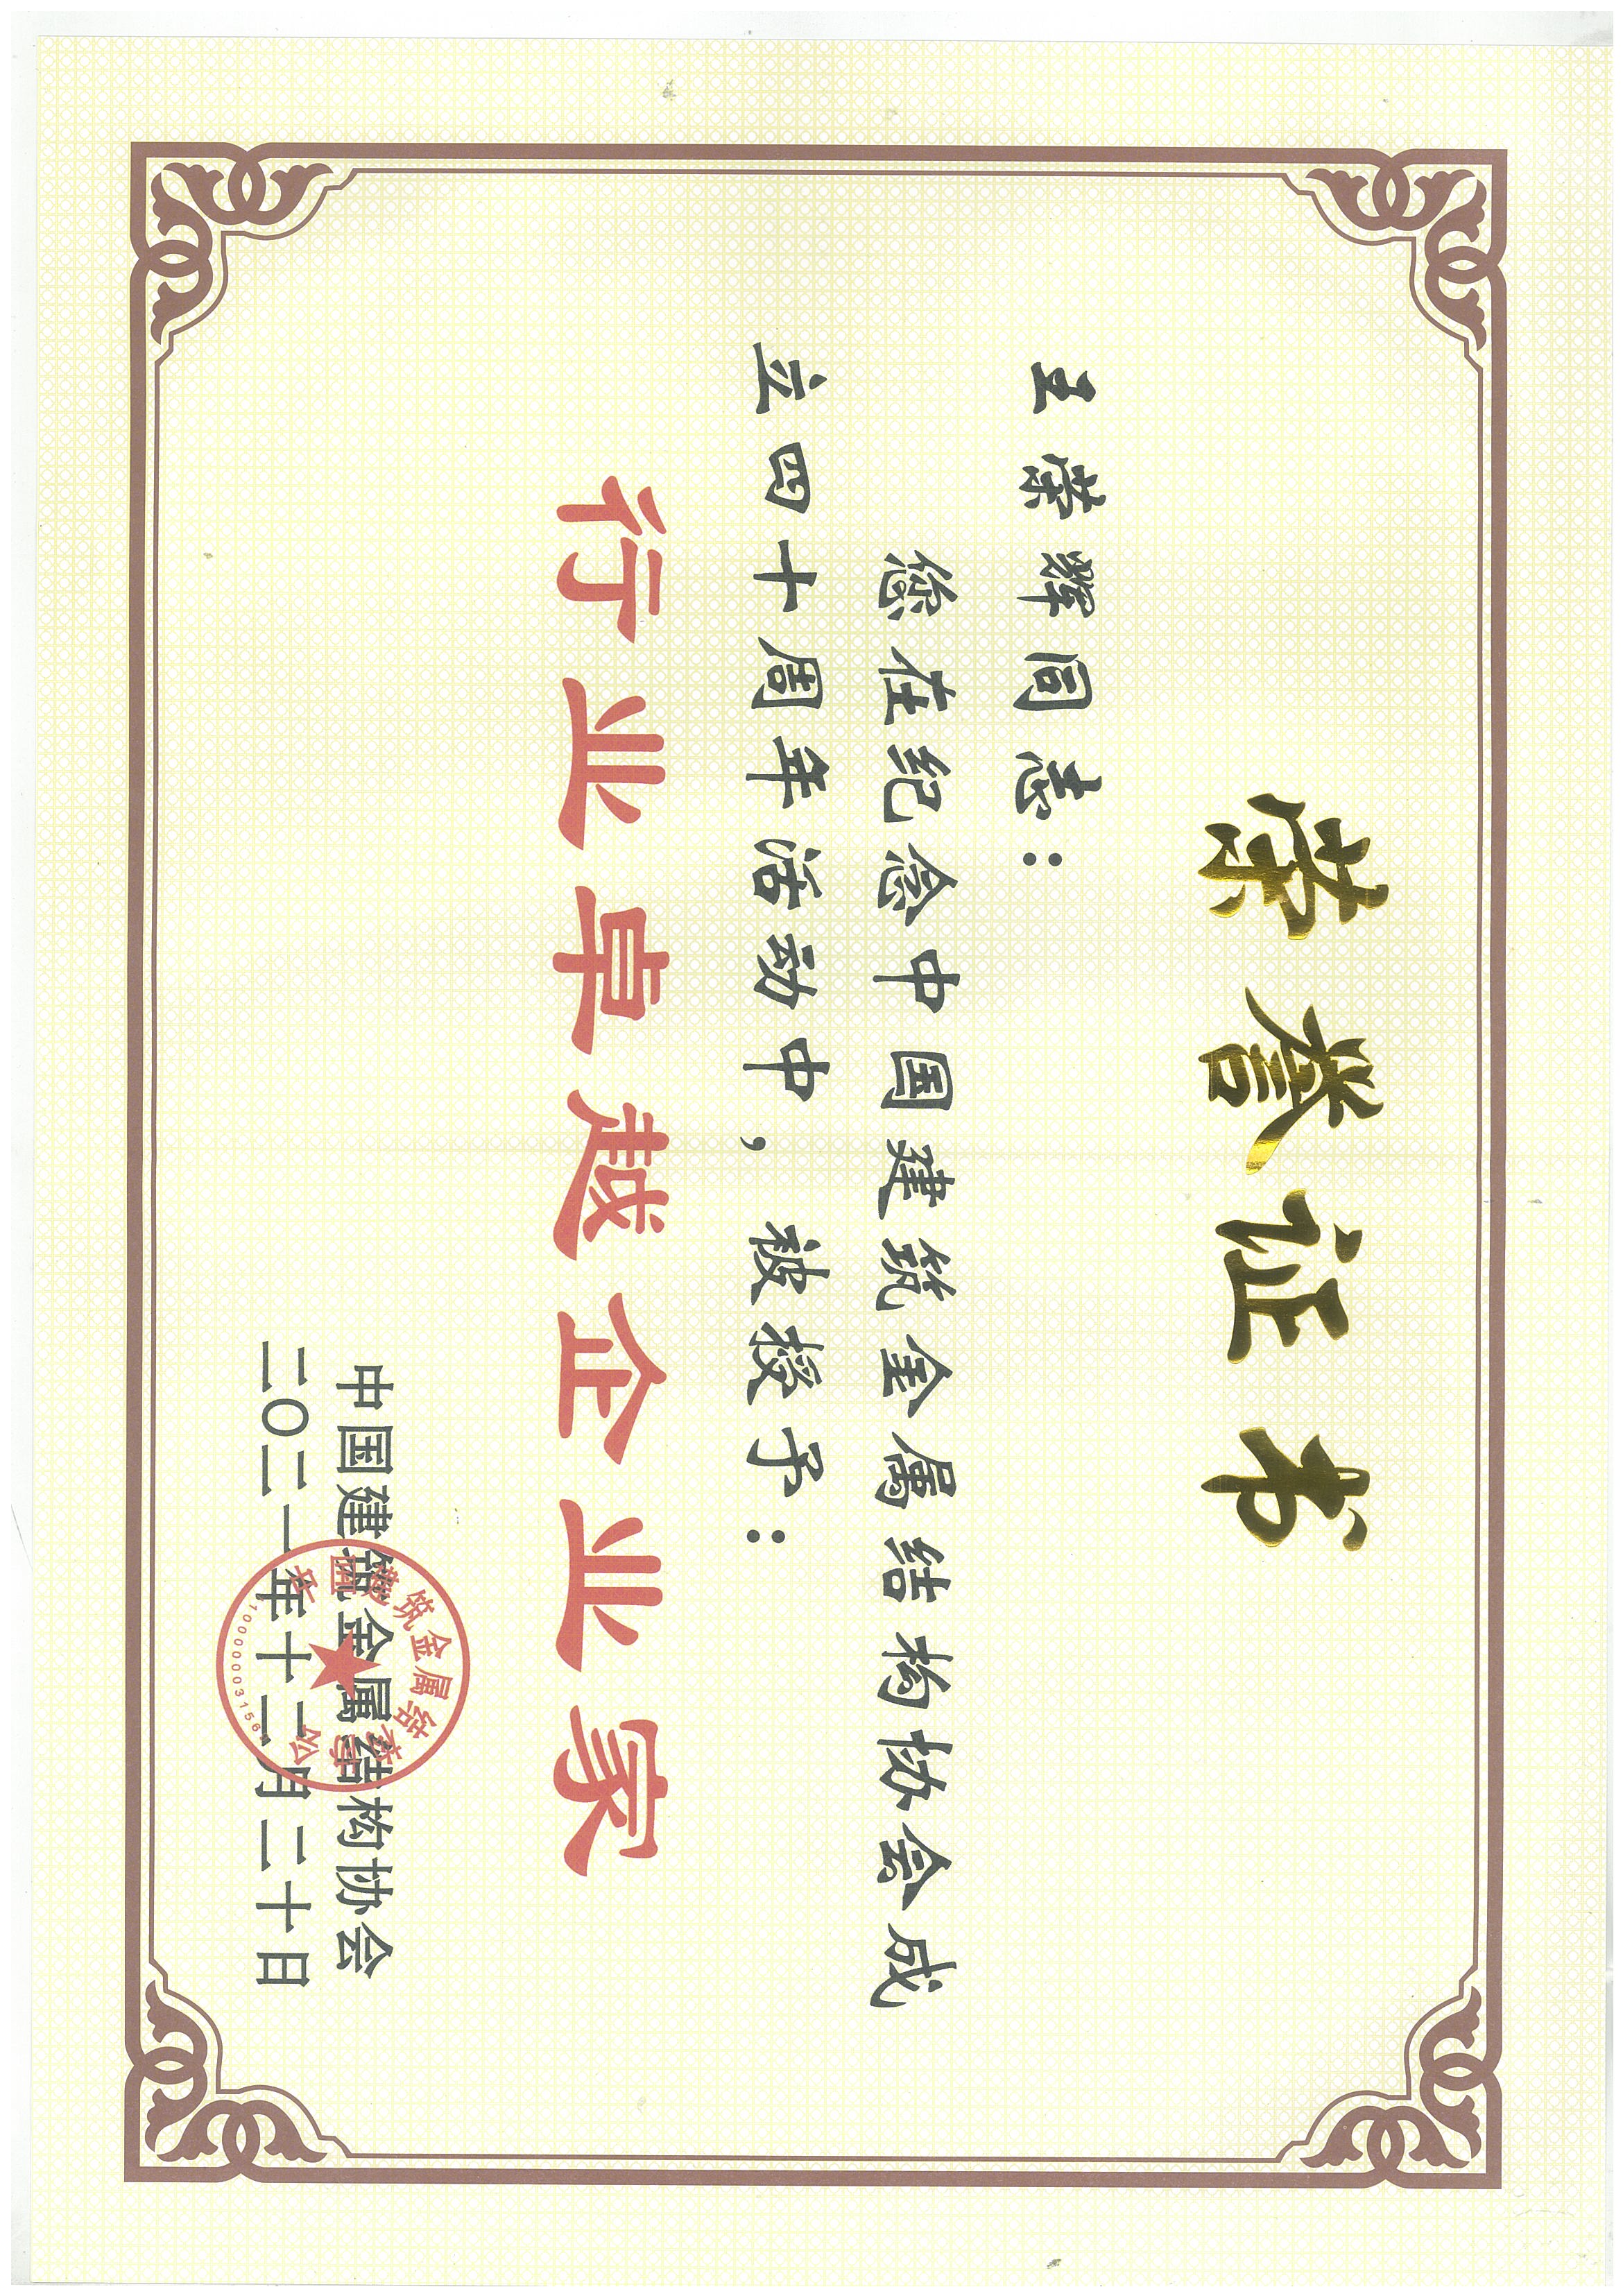 荣誉证书
王荣辉同志：
您在纪念中国建筑金属结构协会成
立四十周年活动中，被授予：
行业卓越企业家
中国建筑金属结构协会
二〇二一年十二月二十日
中国建筑金属结构协会